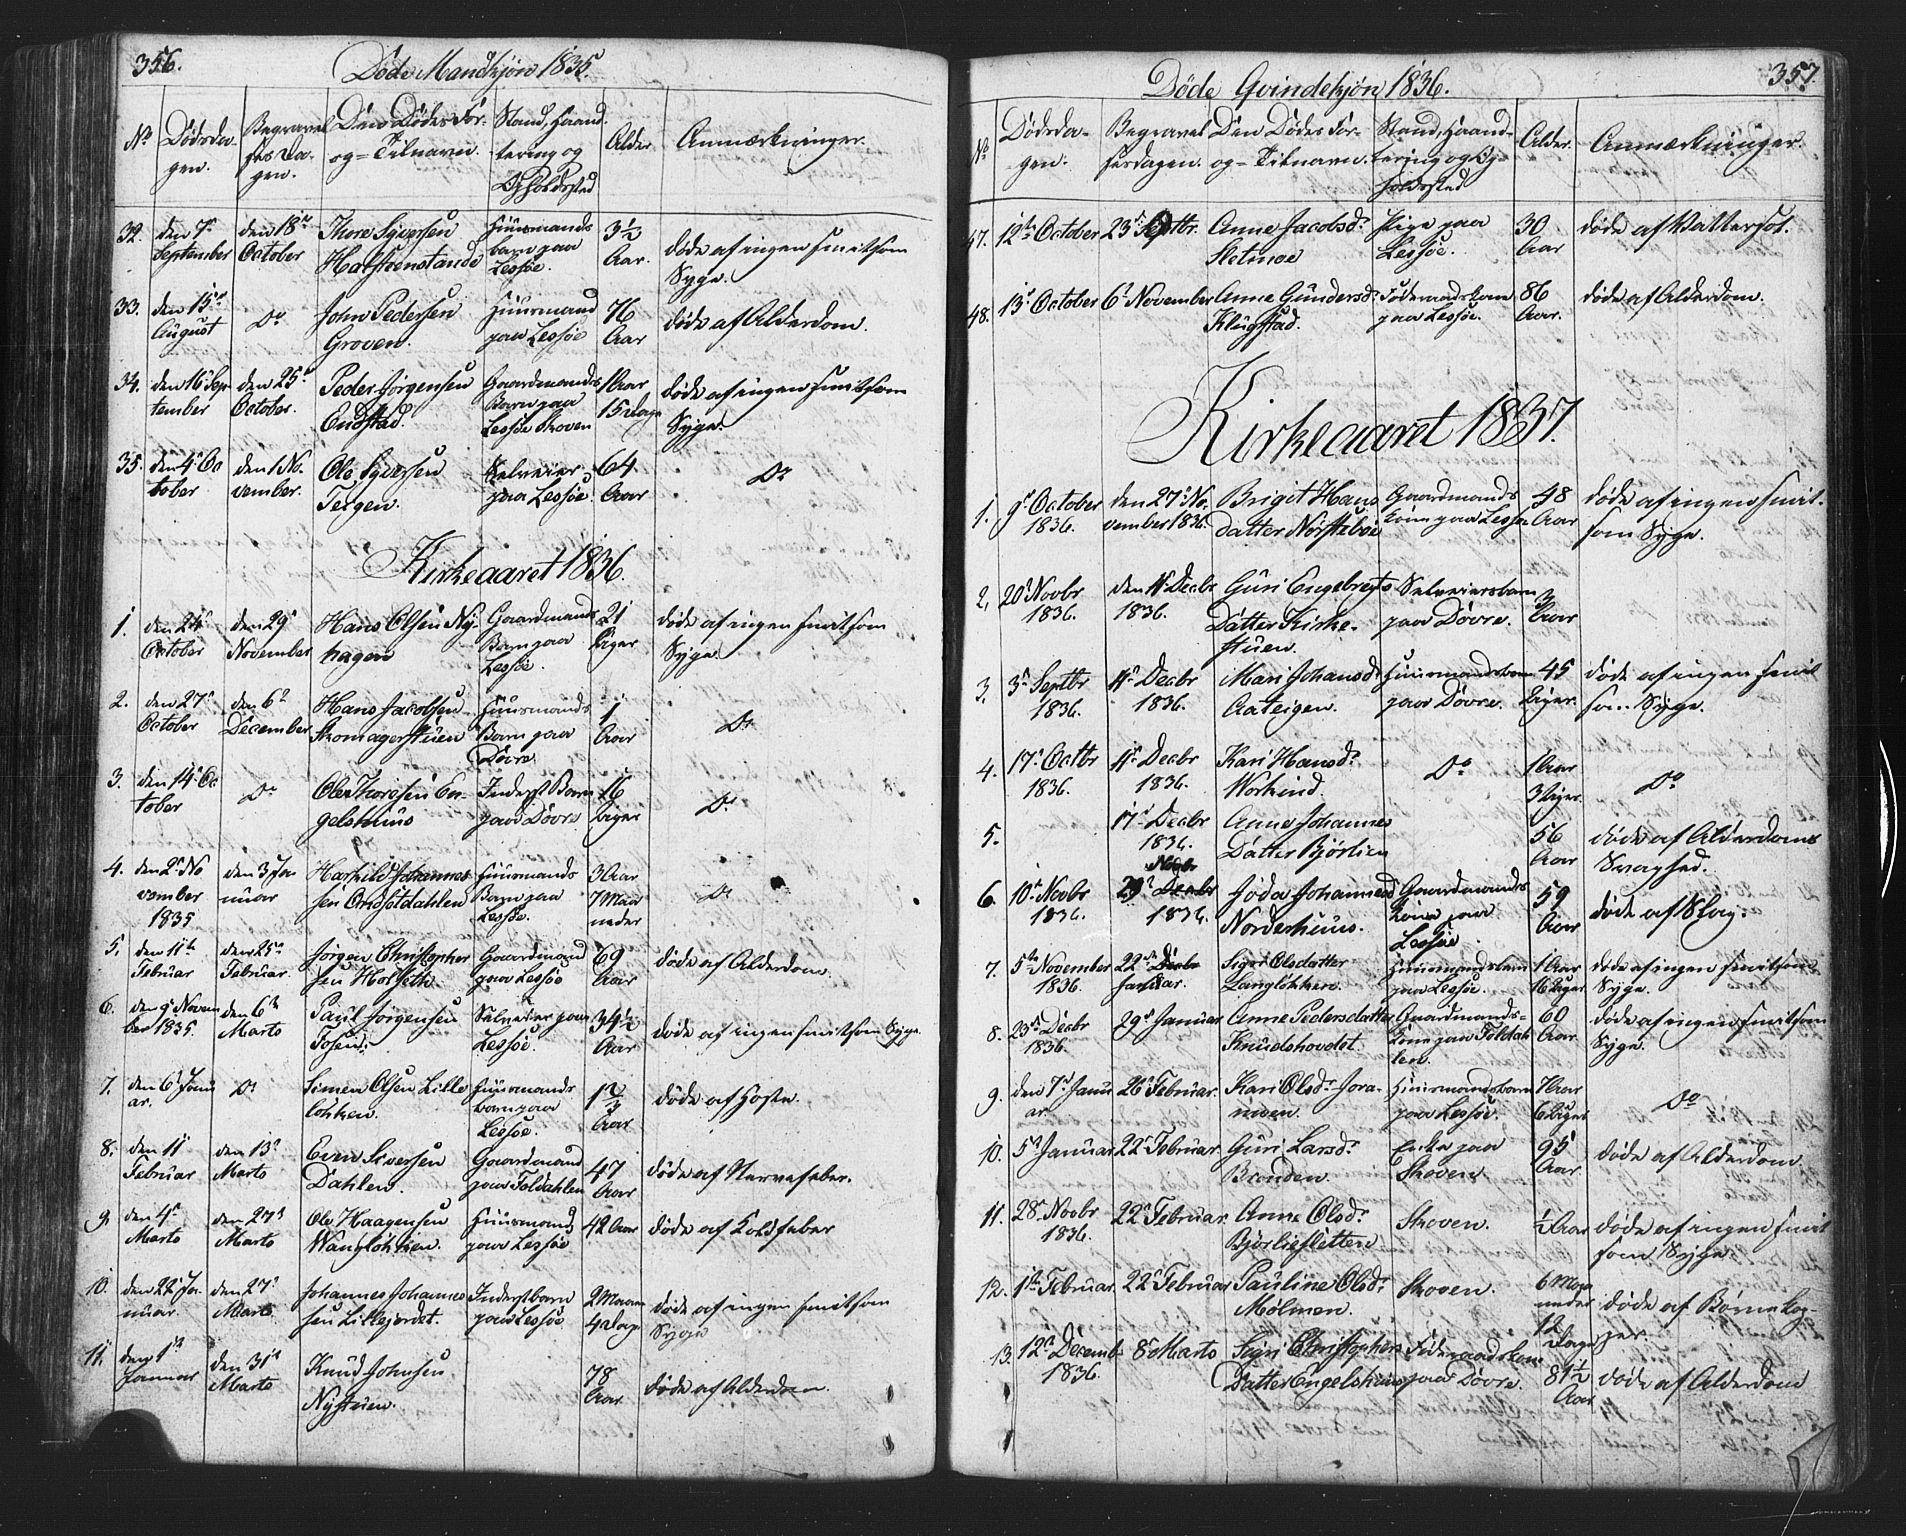 356.
Døde Mandkjøn 1835.
No
Dødsda-
gen.
Begravel
sesda-
gen.
Den Dødes For-
og-Tilnavn.
Stand, Haand
tering og
Opholdssted
Alder
Anmærkninger.
32.
den 7de
September
den 18de
October
Thore Syversen
Halsteenstande
Huusmands
barn paa
Lessøe.
3½
Aar.
døde af ingen smitsom
Syge.
33.
den 15de
August
Do
John Pedersen
Groven.
Huusmand
paa Lessøe
76
Aar
døde af Alderdom.
34.
den 16 Sep
tember
den 25de
October.
Peder Jørgensen
Endstad.
Gaardmands
Barn paa
Lessøe Skoven
1 Aar
15 dage
døde af ingen smitsom
Syge.
35.
den 4de Oc
tober
den 1 No-
vember.
Ole Syversen
Teigen.
Selveier
paa Lessøe.
64
Aar
Do
Kirkeaaret 1836.
1.
den 24de
October
den 29de
November
Hans Olsen Ny-
hagen
Gaardmands
Barn paa
Lessøe.
21
Uger
døde af ingen smitsom
Syge
2.
den 27de
October
den 6te
December
Hans Jacobsen
Skomagerstuen
Huusmands
Barn paa
Dovre
1
Aar
Do
3.
den 14de Oc
tober
Do
Ole Thoresen En-
gelshuus
Inderst Barn
paa Dovre
16
Uger
Do
4.
den 2de No
vember
1835
den 3 Ja-
nuar
Johannes
sen
Huusmands
Barn paa
Lessøe.
3 Aar
7 Maa
neder
Do
5.
den 11te
Februar
den 25de
Februar
Jørgen Christopher
sen Horseth.
Gaardmand
paa Lessøe
69
Aar
døde af Alderdom.
6.
den 9de Novem
ber 1835.
den 6te
Marts
Paul Jørgensen
Tosen.
Selveier paa
Lessøe.
34½
Aar
døde af ingen smitsom Syge.
7.
den 6te Janu
ar.
Do
Simen Olsen Lille
løkken.
Huusmands
barn paa
Lessøe.
1⅔
Aar
døde af Hoste.
8.
den 11
Februar
den 13de
Marts
Even Siversen
Dahlen.
Gaardmand
paa Foldahlen
47
Aar
døde af Nervefeber.
9.
den 4de
Marts
den 27de
Marts
Ole Haagensen
Wangløkken.
Huusmand
paa Lessøe
42 Aar
døde af Koldfeber
10.
den 22de Ja-
nuar.
den 27de
Marts
Johannes Johannes
sen Lillejordet.
Inderstbarn
paa Lessøe.
2 Maan
4 Dage
døde af ingen smitsom
Syge
11.
den 1ste
Januar
den 31te
Marts
Knud Johnsen
Nystuen.
78
Aar.
døde af Alderdom.
357.
Døde Qvindekjøn 1836.
No
Dødsda-
gen.
Begravel
sesdagen.
Den Dødes For-
og-Tilnavn.
Stand, Haand-
tering og Op-
holdssted
Alder.
Anmærkninger.
47.
12te October
23de Octbr.
Anne Jacobsdr
Sletmoe
Pige paa
Lessøe.
30
Aar
døde af Vattersot.
48.
13de October
6te November
Anne Gundersdr
Klugstad.
Føderaadskone
paa Lessøe.
86
Aar.
døde af Alderdom.
Kirkeaaret 1837.
1.
9de October
1836.
den 27de No-
vember 1836.
Brigit Hans
datter Nørstebøe
Gaardmands
kone paa Lessøe
48
Aar
døde af ingen smit-
som Syge.
2.
20de Novbr
1836.
den 11te Decbr
1836.
Guri Engebregts
Datter Kirke-
stuen.
Selveiersbarn
paa Dovre.
3
Aar
3.
3de Septbr
1836.
11te Decbr
1836.
Mari Johansdr
Aateigen.
Huusmandsbarn
paa Dovre.
45
Uger.
døde af ingen smit
som Syge.
4.
17de Octbr
1836.
11te Decbr
1836.
Kari Hansdr
Workind.
Do
1 Aar
3 Uger.
Do
5.
17de Decbr
1836.
Anne Johannes
Datter Bjørlien
56
Aar
døde af Alderdoms
Svaghed.
6.
10de Novbr
1836.
Novbr
29de Decbr
1836.
Johannesd
Norderhuus.
Gaardmands
kone paa
Lessøe
59
Aar
døde af Slag.
7.
5te November
1836.
22de Decbr
Januar.
Sigri Olsdatter
Langløkken.
Huusmandsbarn
paa Lessøe.
1 Aar
16 Uger
døde af ingen smitsom
Syge.
8.
23de Decbr
1836.
29de Januar
Anne Pedersdatter
Knudshovdet.
Gaardmands-
kone paa Foldah
len.
60
Aar
døde af ingen smitsom
Syge.
9.
den 7de Janu
ar.
26de Februar.
Kari Olsdr Jora-
moen.
Huusmandsbarn
paa Lessøe.
7 Aar
6 Uger
Do
10.
5te Januar
22de Februar
Guri Larsdr
Brenden.
Enke paa
Skoven
95
Aar
døde af Alderdom
11.
28de Novbr
1836.
22de Februar
Anne Olsdr
Bjørliesletten
Skoven.
½ Aar
døde af ingen smit
som Syge.
12.
1ste Februar
22de Februar
Pauline Olsdr
Mølmen.
Skoven.
6 Maa
neder
12
Dage
døde af Børnekop-
per.
13.
12te Decemb
1836.
8de Marts
Sigri Christophers
Datter Engelshuus
Føderaadskone
paa Dovre.
81½
Aar
døde af Alderdom